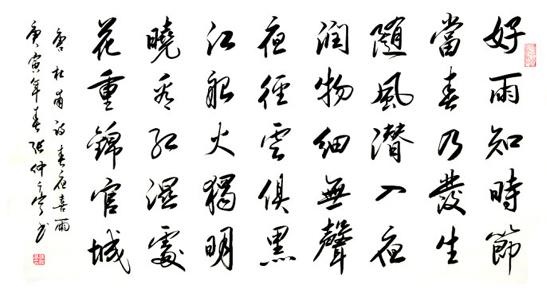 好雨知時節
當春乃發生
隨風潜入夜
潤物細無聲
夜徑雲俱黑
江船火獨明
曉看紅濕處
花重錦官城
唐杜甫詩春夜喜雨
庚寅年春張仲亭书